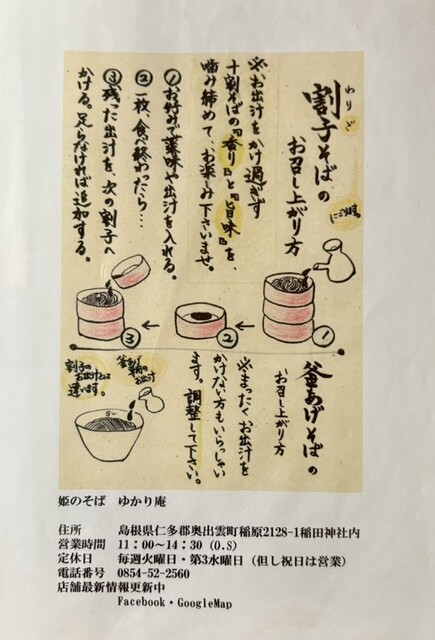 割子そばの
わりご
お召し上がり方
※お出汁をかけ過ぎず
十割そばの『香り』と『旨味』を、
噛み締めて、お楽しみ下さいませ。
①お好みで薬味や出汁を入れる。
②一枚、食べ終わったら…
③残った出汁を、次の割子へ
かける。足らなければ追加する。
①
②
③
釜あげそばの
お召し上がり方
※まったくお出汁を
かけない方もいらっしゃい
ます。調整して下さい。
釜あげ
専用の
お出汁
割子の
お出汁とは
違います。
姫のそば ゆかり庵
住所 島根県仁多郡奥出雲町稲原2128-1稲田神社内
営業時間 11：00～14：30（O.S）
定休日 毎週火曜日・第3水曜日（但し祝日は営業）
電話番号 0854-52-2560
店舗最新情報更新中
Facebook・GoogleMap